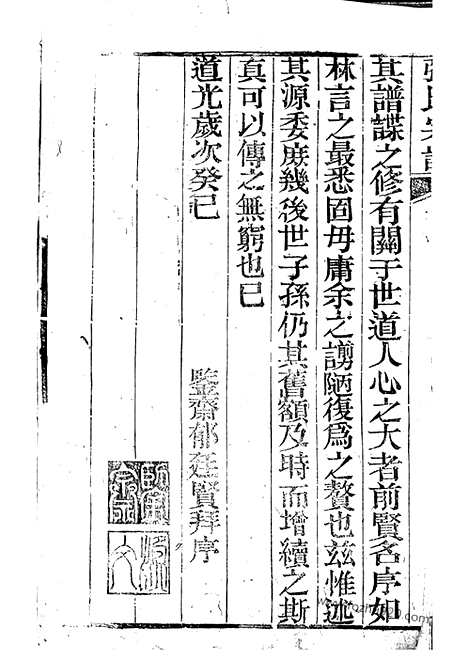 張氏宗譜
其譜諜之修有關于世道人心之大者前賢各序如
林言之最悉固毋庸余之謭陋復爲之贅也茲惟述
其源委庶幾後世子孫仍其舊額及時而增續之斯
真可以傳之無窮也已
道光歲次癸巳
鑒齋郁廷賢拜序